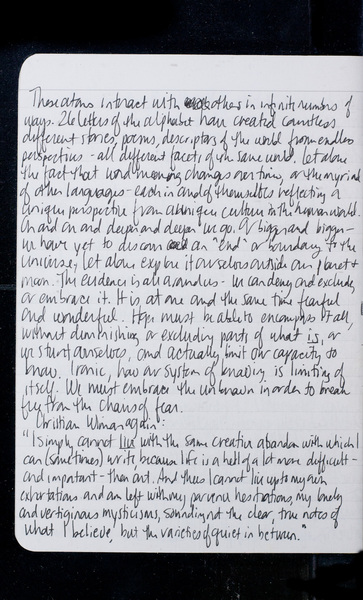 These atoms interact with each other in infinite numbers of
ways. 26 letters of the alphabet have created countless
different stories, poems, descriptors of the world from endless
perspectives - all different facets of the same world, let alone
the fact that word meaning changes over time, or the myriad
of other languages - each in and of themselves reflecting a
unique perspective from a unique culture in the human world.
On and on and deeper and deeper we go. Or bigger and bigger -
we have yet to discover an "end" or boundary to the
universe, let alone explore it ourselves outside our planet &
moon. The evidence is all around us - we can deny and exclude,
or embrace it. It is at one and the same time fearful
and wonderful. Hope must be able to encompass it all,
without diminishing or excluding parts of what is, or
we stunt ourselves, and actually limit our capacity to
know. Ironic, how our system of knowing is limiting of
itself. We must embrace the unknown in order to break
free from the chains of fear.
Christian Wiman again:
"I simply cannot live with the same creative abandon with which I
can (sometimes) write, because life is a hell of a lot more difficult -
and important - than art. And thus I cannot live up to my own
exhortations and am left with my perennial hesitations, my lonely
and vertiginous mysticisms, sounding not the clear, true notes of
what I believe, but the varieties of quiet in between."